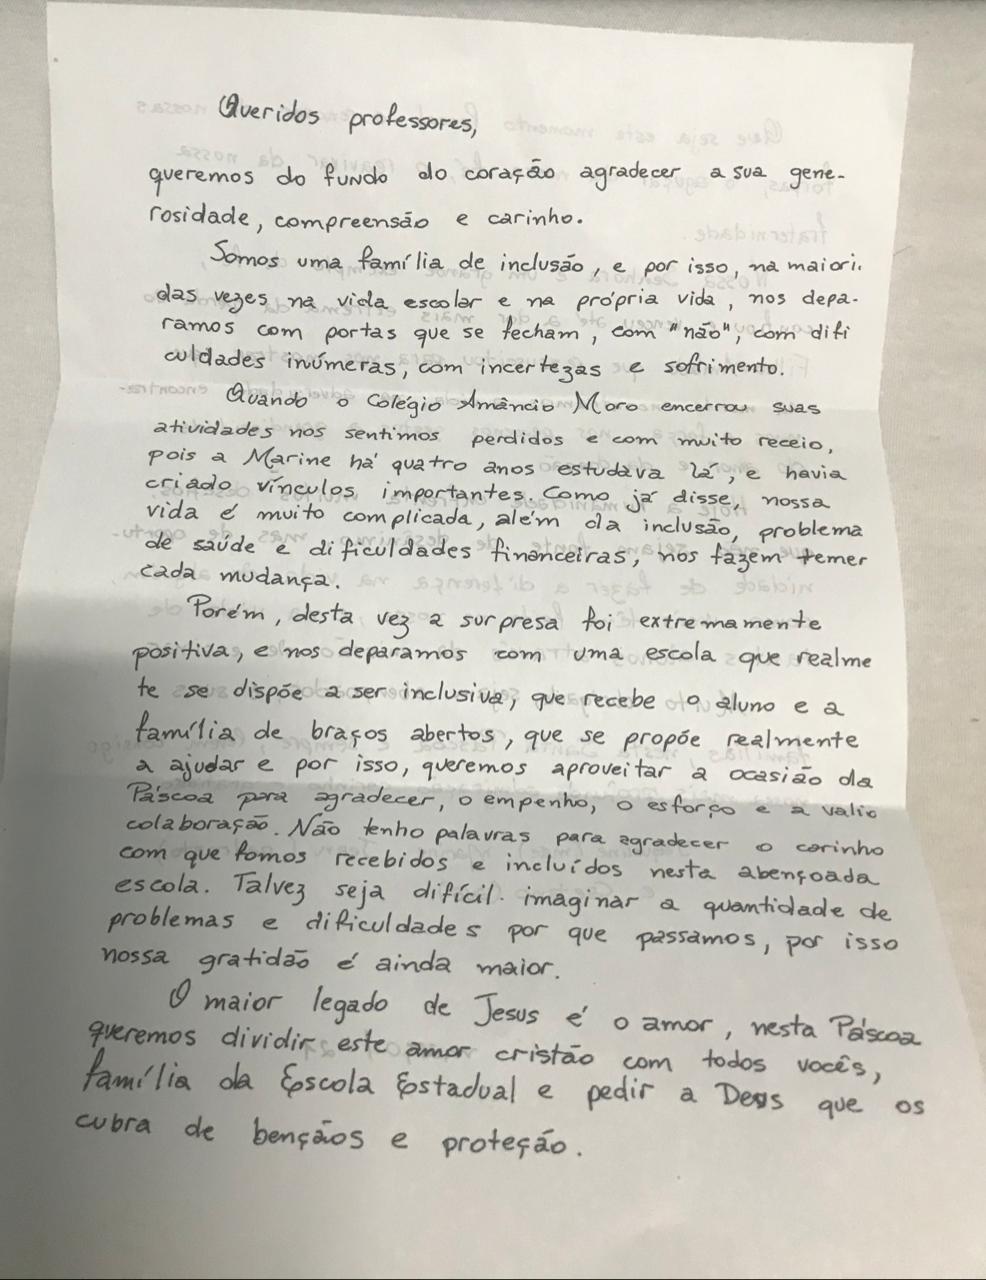 Queridos professores,
queremos do fundo do coração agradecer a sua gene-
rosidade, compreensão e carinho.
Somos uma família de inclusão, e por isso, na maiori.
das vezes na vida escolar e na própria vida, nos depa-
ramos com portas que se fecham, com "não", com difi
culdades inúmeras, com incertezas e sofrimento.
Quando o Colégio Amâncio Moro encerrou suas
atividades nos sentimos perdidos e com muito receio,
pois a Marine há quatro anos estudava lá, e havia
criado vínculos importantes. Como já disse, nossa
vida é muito complicada, além da inclusão, problema
de saúde e dificuldades financeiras, nos fazem temer
cada mudança.
Porém, desta vez a surpresa foi extremamente
positiva, e nos deparamos com uma escola que realme
te se dispõe a ser inclusiva, que recebe o aluno e a
família de braços abertos, que se propõe realmente
a ajudar e por isso, queremos aproveitar a ocasião da
Páscoa para agradecer, o empenho, o esforço e a valio
colaboração. Não tenho palavras para agradecer o carinho
com que fomos recebidos e incluídos nesta abençoada
escola. Talvez seja difícil imaginar a quantidade de
problemas e dificuldades por que passamos, por isso
nossa gratidão é ainda maior.
O maior legado de Jesus é o amor, nesta Páscoa
queremos dividir este amor cristão com todos vocês,
família da Escola Estadual e pedir a Deus que os
cubra de bençãos e proteção.